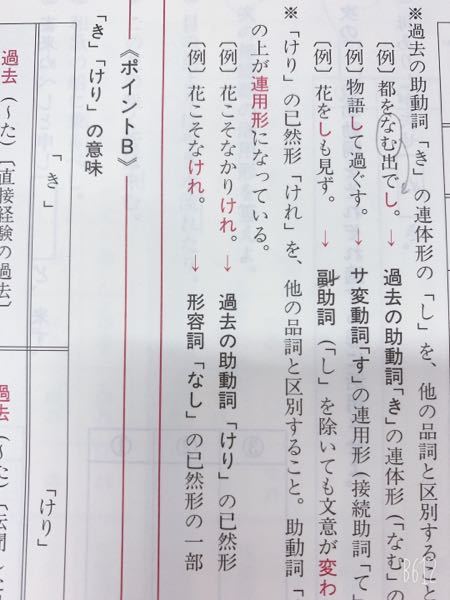 ※過去の助動詞「き」の連体形の「し」を、他の品詞と区別すると
〔例〕都をなむ出でし。→ 過去の助動詞「き」の連体形(「なむ」の
〔例〕物語して過ぐす。→ サ変動詞「す」の連用形(接続助詞「て」
〔例〕花をしも見ず。→ 副助詞(「し」を除いても文意が変わ
※「けり」の已然形「けれ」を、他の品詞と区別すること。助動詞「
の上が連用形になっている。
〔例〕花こそなかりけれ。→ 過去の助動詞「けり」の已然形
〔例〕花こそなけれ。→ 形容詞「なし」の已然形の一部
《ポイントB》
「き」「けり」の意味
「き」
「けり」
過去(〜た)〔直接経験の過去〕
過去(〜た)〔伝聞
B612